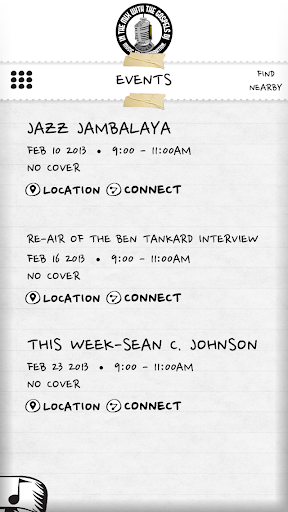 IN THE MIX WITH THE GOSPELS OF
EVENTS
FIND
NEARBY
JAZZ JAMBALAYA
FEB 10 2013 • 9:00 - 11:00AM
NO COVER
LOCATION CONNECT
RE-AIR OF THE BEN TANKARD INTERVIEW
FEB 16 2013 • 9:00 - 11:00AM
NO COVER
LOCATION CONNECT
THIS WEEK-SEAN C. JOHNSON
FEB 23 2013 • 9:00 - 11:00AM
NO COVER
LOCATION CONNECT